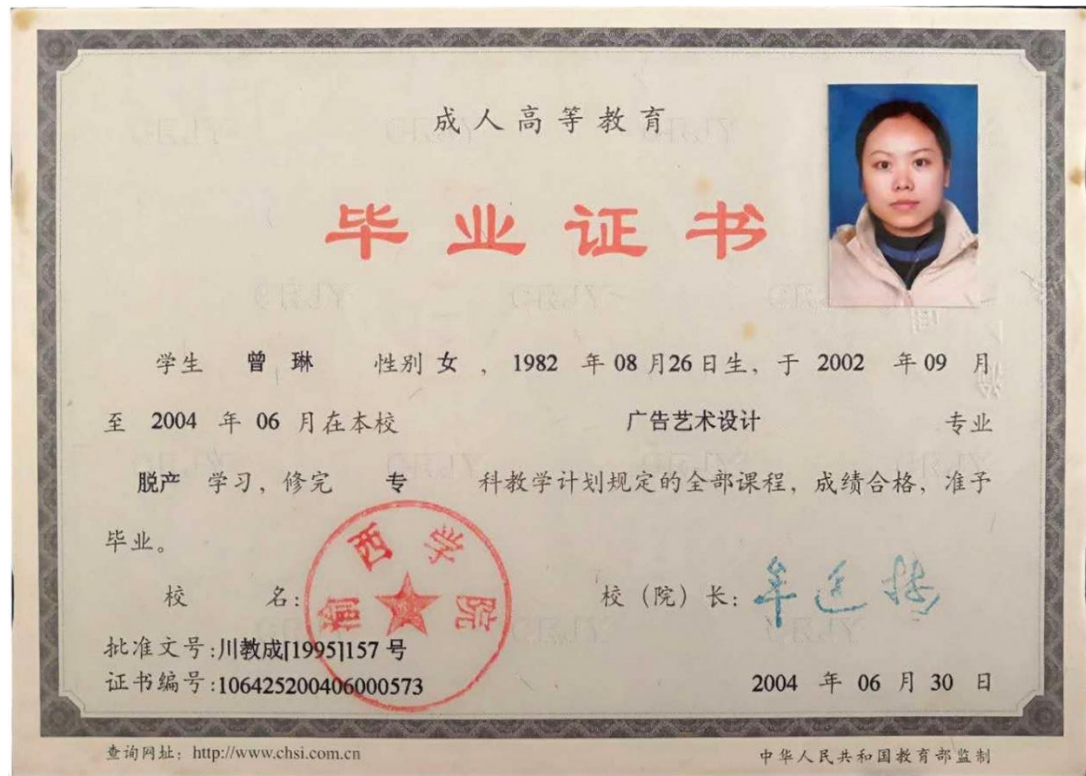 成人高等教育
毕业证书
学生 曾琳 性别 女 ，1982 年 08 月 26 日生，于 2002 年 09 月
至 2004 年 06 月在本校 广告艺术设计 专业
脱产 学习，修完 专 科教学计划规定的全部课程，成绩合格，准予
毕业。
校 名： 渝西学院 校（院）长：
批准文号：川教成[1995]157 号
证书编号：106425200406000573 2004 年 06 月 30 日
查询网址：http://www.chsi.com.cn 中华人民共和国教育部监制